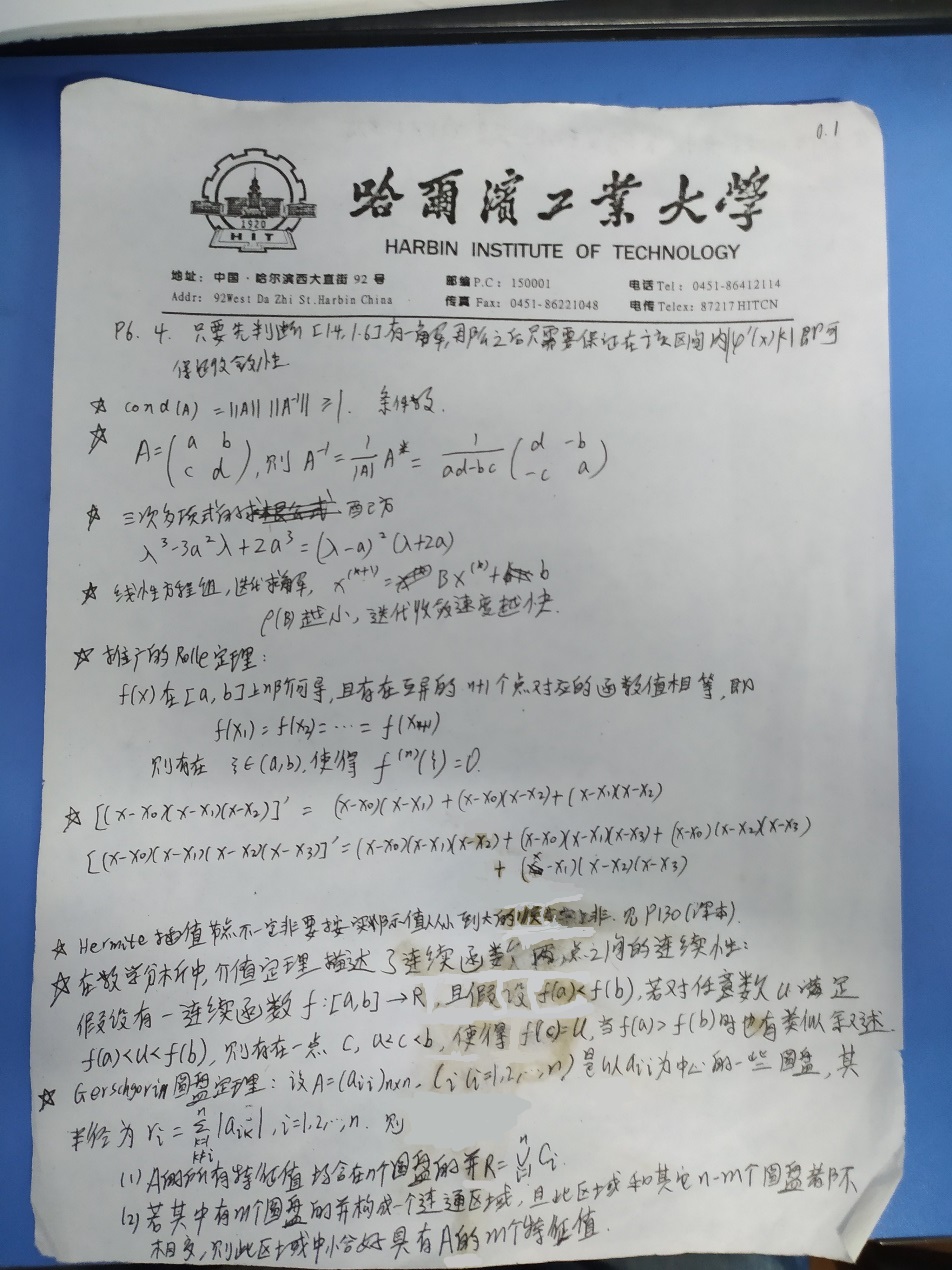 0.1
哈爾濱工業大學
HARBIN INSTITUTE OF TECHNOLOGY
1920
H I T
地址：中国·哈尔滨西大直街 92 号 邮编 P.C：150001 电话 Tel：0451-86412114
Addr：92West Da Zhi St.Harbin China 传真 Fax：0451-86221048 电传 Telex：87217HITCN
P6. 4. 只要先判断[1.4,1.6]有解,用所之后只需要保证在于该区间内|φ'(x)|<1即可
保收敛性
☆ cond(A) = ||A|| ||A⁻¹|| ≥ 1. 条件数.
☆ A = (a b
c d), 则 A⁻¹ = 1/|A| A* = 1/(ad-bc) (d -b
-c a)
☆ 三次多项式的求 西己方
λ³-3a²λ+2a³ = (λ-a)²(λ+2a)
☆ 线性方程组, 迭代解, x⁽ᵏ⁺¹⁾ = Bx⁽ᵏ⁾ + b
ρ(B)越小, 迭代收敛速度越快.
☆ 推广的Rolle定理:
f(x)在[a,b]上n阶可导,且存在互异的n+1个点对应的函数值相等,即
f(x₁)=f(x₂)=…=f(xₙ₊₁)
则存在 ξ∈(a,b),使得 f⁽ⁿ⁾(ξ)=0.
☆ [(x-x₀)(x-x₁)(x-x₂)]' = (x-x₀)(x-x₁)+(x-x₀)(x-x₂)+(x-x₁)(x-x₂)
[(x-x₀)(x-x₁)(x-x₂)(x-x₃)]' = (x-x₀)(x-x₁)(x-x₂)+(x-x₀)(x-x₁)(x-x₃)+(x-x₀)(x-x₂)(x-x₃)
+(x-x₁)(x-x₂)(x-x₃)
☆ Hermite插值节点不一定非要按 值从小到大的 非. 见P130(课本).
☆ 在数学分析中,介值定理描述了连续函数两点之间的连续性:
假设有一连续函数 f:[a,b]→R,且假设f(a)<f(b),若对任意数u满足
f(a)<u<f(b),则存在一点 c, a<c<b,使得f(c)=u,当f(a)>f(b)时也有类似叙述.
☆ Gerschgorin圆盘定理:设A=(aᵢⱼ)n×n, Cᵢ(i=1,2,…,n)是以aᵢᵢ为中心的一些圆盘,其
半径为 rᵢ=Σ|aᵢₖ|, i=1,2,…,n. 则
(1) A的所有特征值均含在n个圆盘的并R=∪Cᵢ
(2) 若其中有m个圆盘的并构成一个连通区域,且此区域和其它n-m个圆盘都不
相交,则此区域中恰好具有A的m个特征值.